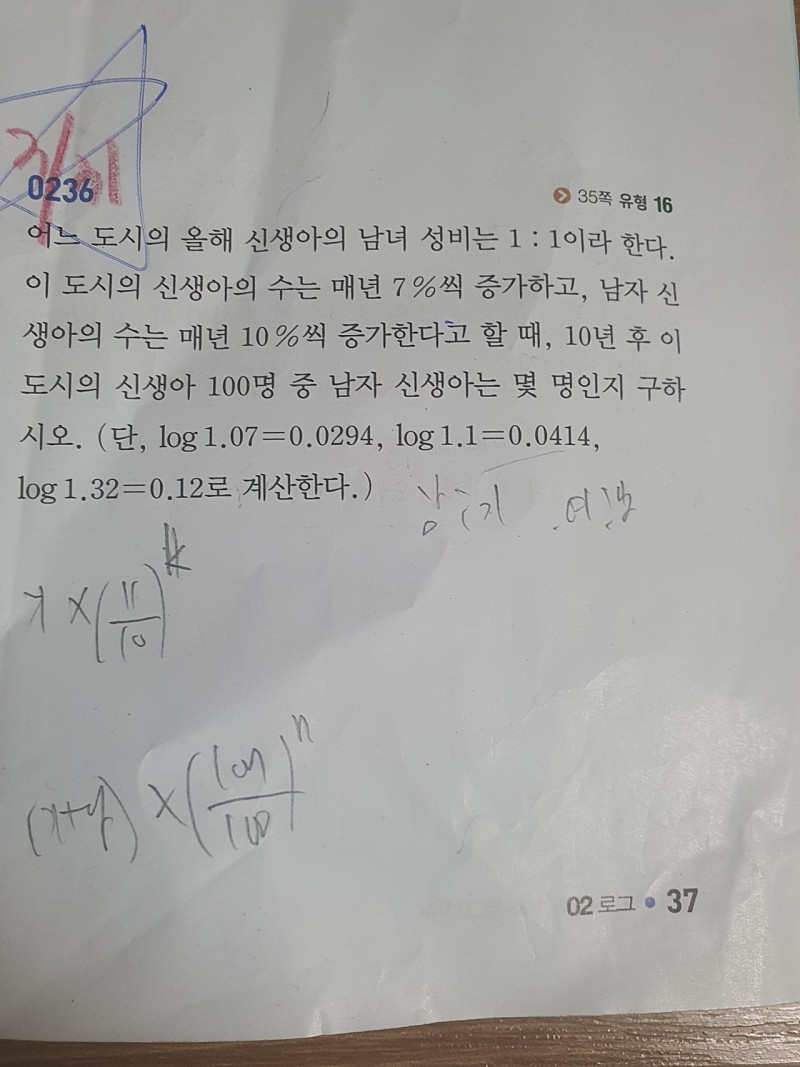 0236
35쪽 유형 16
어느 도시의 올해 신생아의 남녀 성비는 1 : 1이라 한다.
이 도시의 신생아의 수는 매년 7%씩 증가하고, 남자 신
생아의 수는 매년 10%씩 증가한다고 할 때, 10년 후 이
도시의 신생아 100명 중 남자 신생아는 몇 명인지 구하
시오. (단, log 1.07=0.0294, log 1.1=0.0414,
log 1.32=0.12로 계산한다.)
x × (11/10)
(x+y) × (107/100)^n
02 로그 • 37